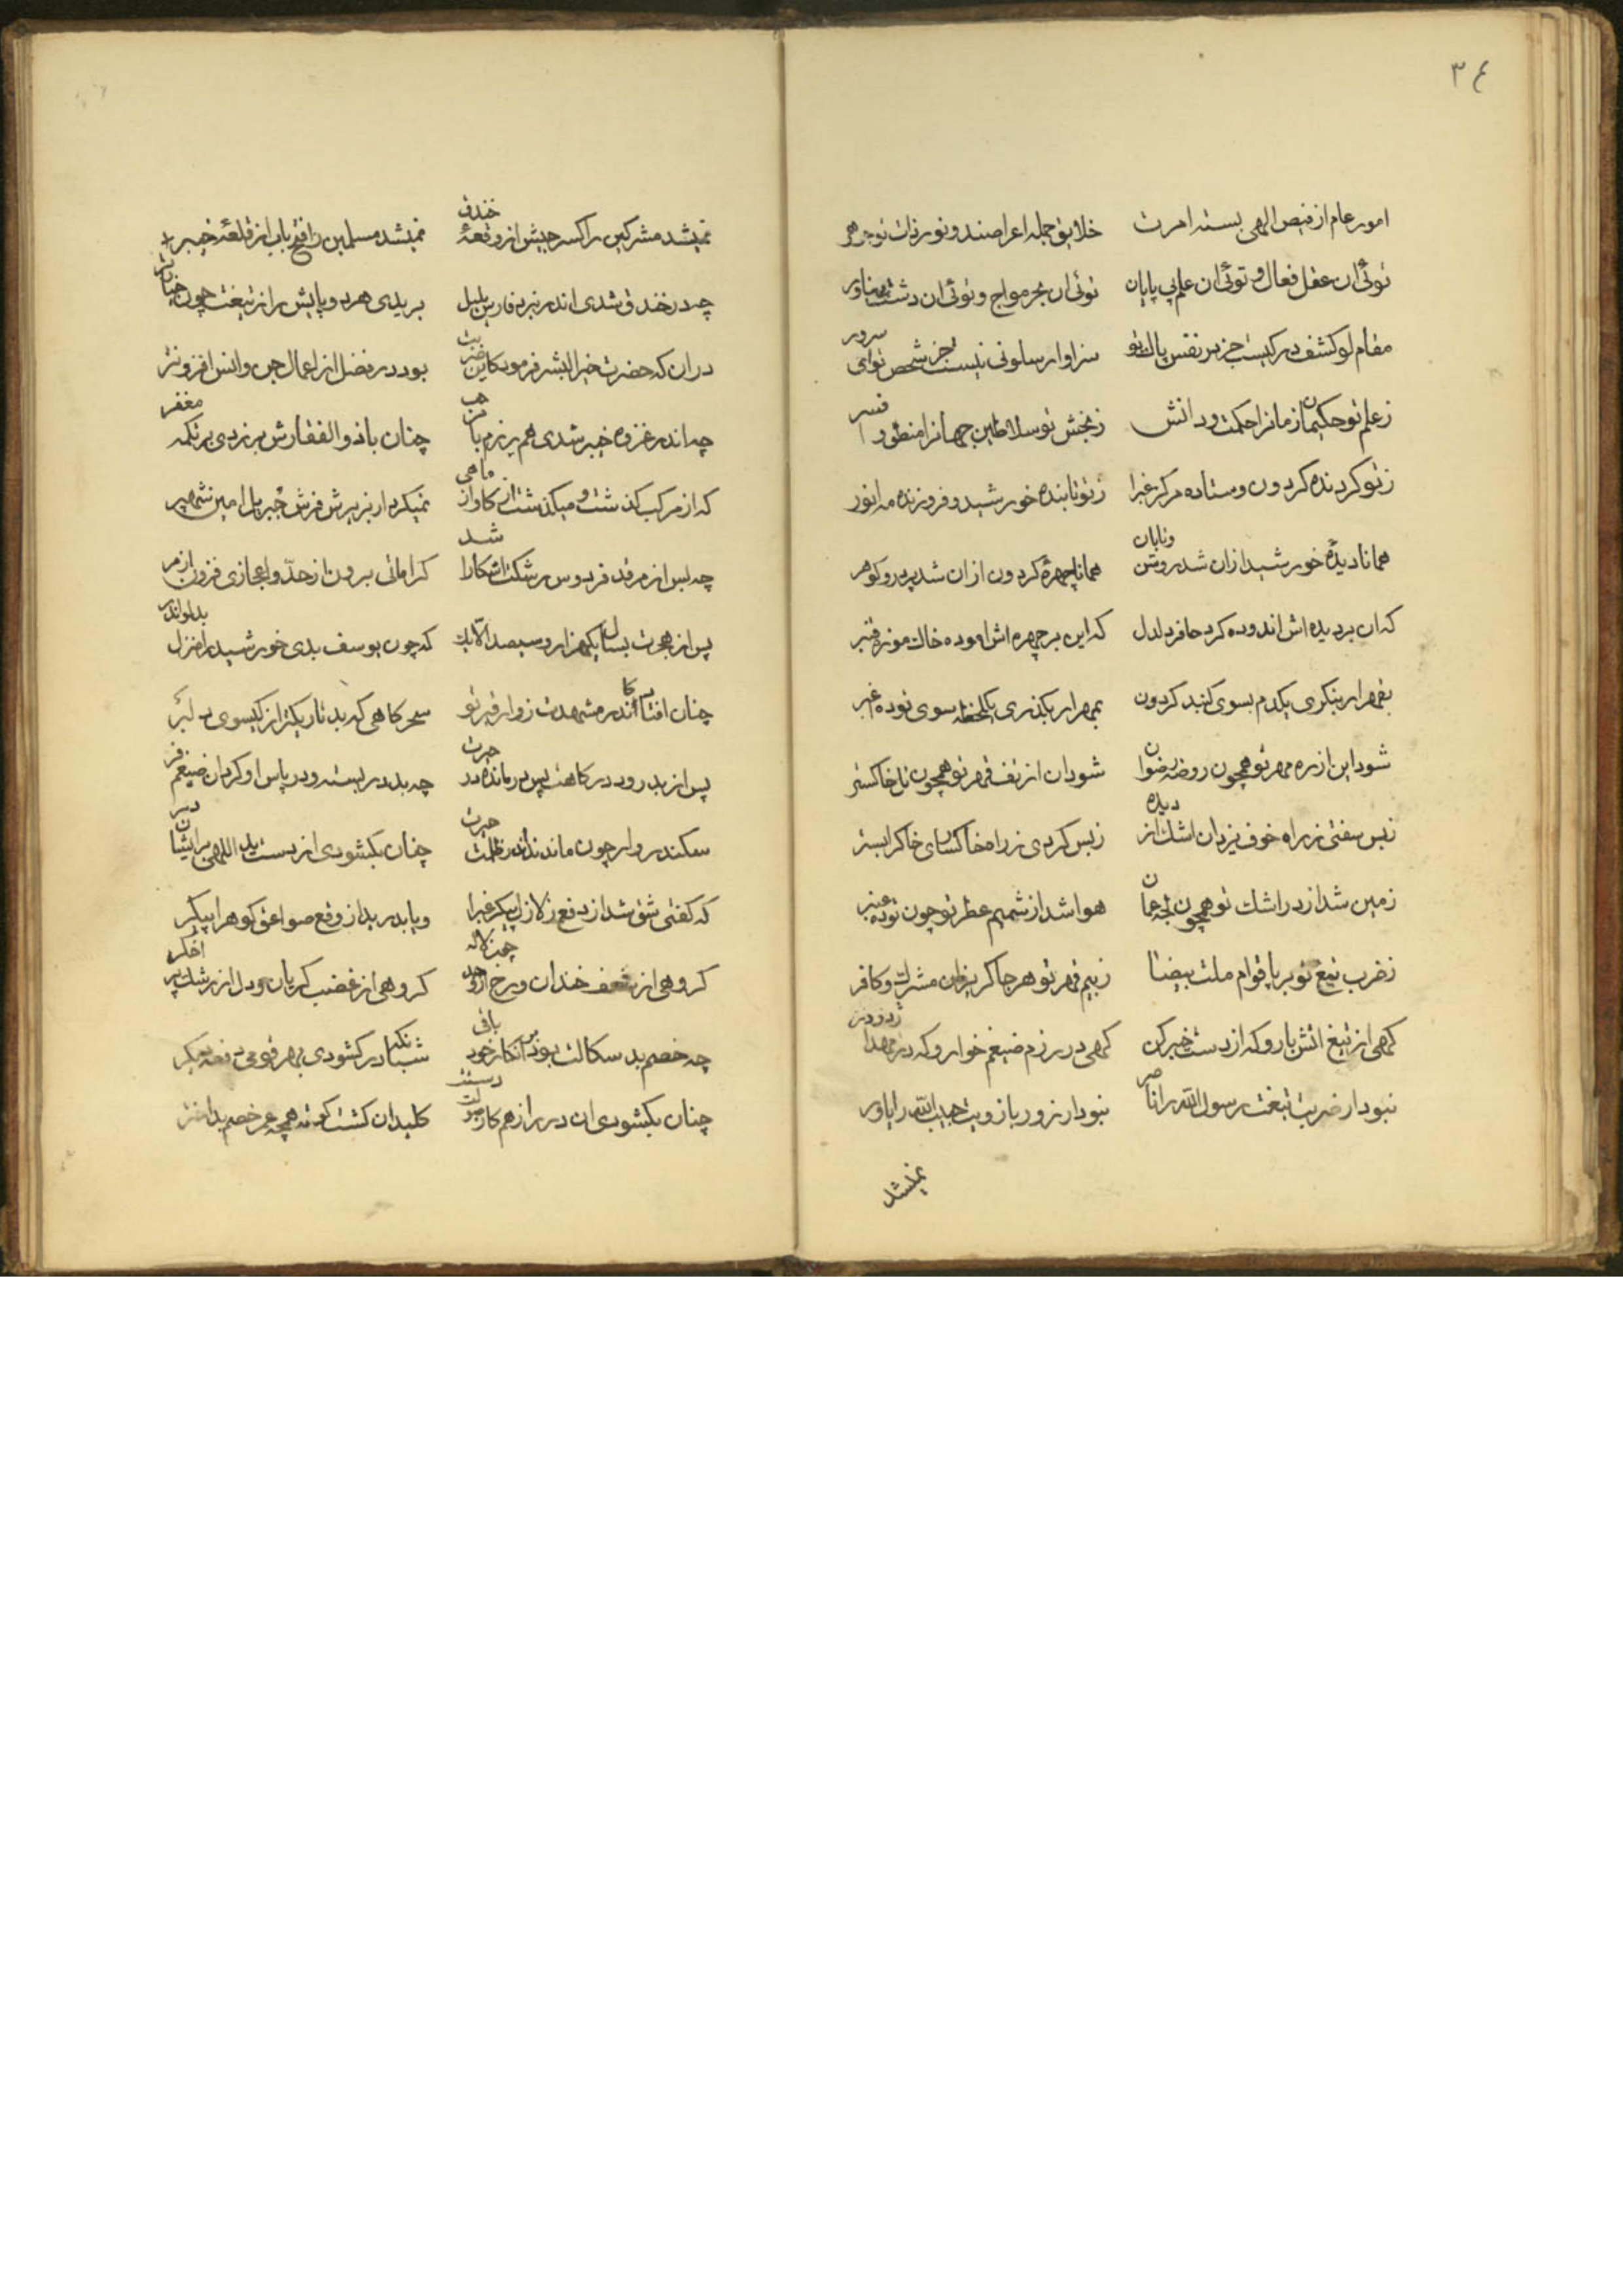 ٣٤
امور عام از فیض الهی بسته امرت خلایق جمله اعراضند و نور ذات تو جوهر
توئی ان عقل فعال و توئی ان علم بی پایان توئی ان بحر مواج و توئی ان دشت پهناور
مقام لو کشف در کیست جز بر نفس پاک تو سزاوار سلونی نیست جز شخص تو ای سرور
ز علم تو حکیمان زمانرا حکمت و دانش ز بخش تو سلاطین جهانرا منطق و افسر
ز تو کردنده کردون و ستاده مرکز غبرا ز تو تابنده خورشید و فروزنده مه انور
همانا دیدهٔ خورشید ازان شد روشن و تابان همانا چهرهٔ کردون ازان شد پر در و کوهر
که ان بر دیده اش اندوده کرد حافر دلدل که این بر چهره اش اموده خاک موزه قنبر
بقهر ار بنکری یکدم بسوی کنبد کردون بمهر ار بکذری یکلحظه سوی توده غبر
شود این از ره مهر تو همچون روضه رضوان شود ان از تف قهر تو همچون تل خاکستر
ز بس سفتی ز راه خوف یزدان اشک از دیده ز بس کردی ز راه خاکسای خاکرا بستر
زمین شد از در اشک تو همچون لجه عمان هوا شد از شمیم عطر تو چون توده عنبر
ز ضرب تیغ تو بر پا قوام ملت بیضا ز بیم قهر تو هر جا کریزان مشرک و کافر
کهی از تیغ اتش بار و که از دست خیبر کن کهی در رزم ضیغم خوار و که در مهد اژدر در
نبود ار ضربت تیغت رسول الله را ناصر نبود ار زور بازویت حبیب الله را یاور
نمیشد
نمیشد مشرکین را کسر جیش از وقعهٔ خندق نمیشد مسلمین را فتح باب از قلعهٔ خیبر
چه در خندق شدی اندر نبرد فارس یلیل بریدی هر دو پایش را ز تیغت چون خیار تر
دران که حضرت خیر البشر فرمود کاین ضربت بود در فضل از اعمال جن و انس افزونتر
چه اندر غزوه خیبر شدی هم رزم با مرحب چنان با ذو الفقارش بر زدی بر تکه مغفر
که از مرکب کذشت و میکذشت از کاو از ماهی نمیکرد ار بزیرش فرش جبریل امین شهپر
چه بس از مرقد فردوس رشکت اشکارا شد کراماتی برون از حد و اعجازی فزون از مر
پس از هجرت بسال یکهزار و سیصد الا یک که چون یوسف بدی خورشید را منزل بدلو اندر
چنان افتاد کاندر مشهدت زوار قبر تو سحر کاهی که بد تاریکتر از کیسوی دلبر
پس از بدرود درکاهت پس در مانده در حیرت چه بد در بسته و در پاس او کردان ضیغم فر
سکندر وار چون ماندند اندر ظلمت حیرت چنان بکشودی از دست ید اللهی برایشان در
که کفتی شق شد از دفع زلازل پیکر غبرا و یا بدرید از وقع صواعق کوه را پیکر
کروهی از شعف خندان و رخ چون لاله کروهی از غضب کریان و دل از رشک پر اخکر
چه خصم بد سکالت بود بر انکار خود باقی شبانکه در کشودی بهر قومی دفعه دیکر
چنان بکشودی ان در را ز هم کلید ان کشت کوته همچه عمر خصم بد اختر